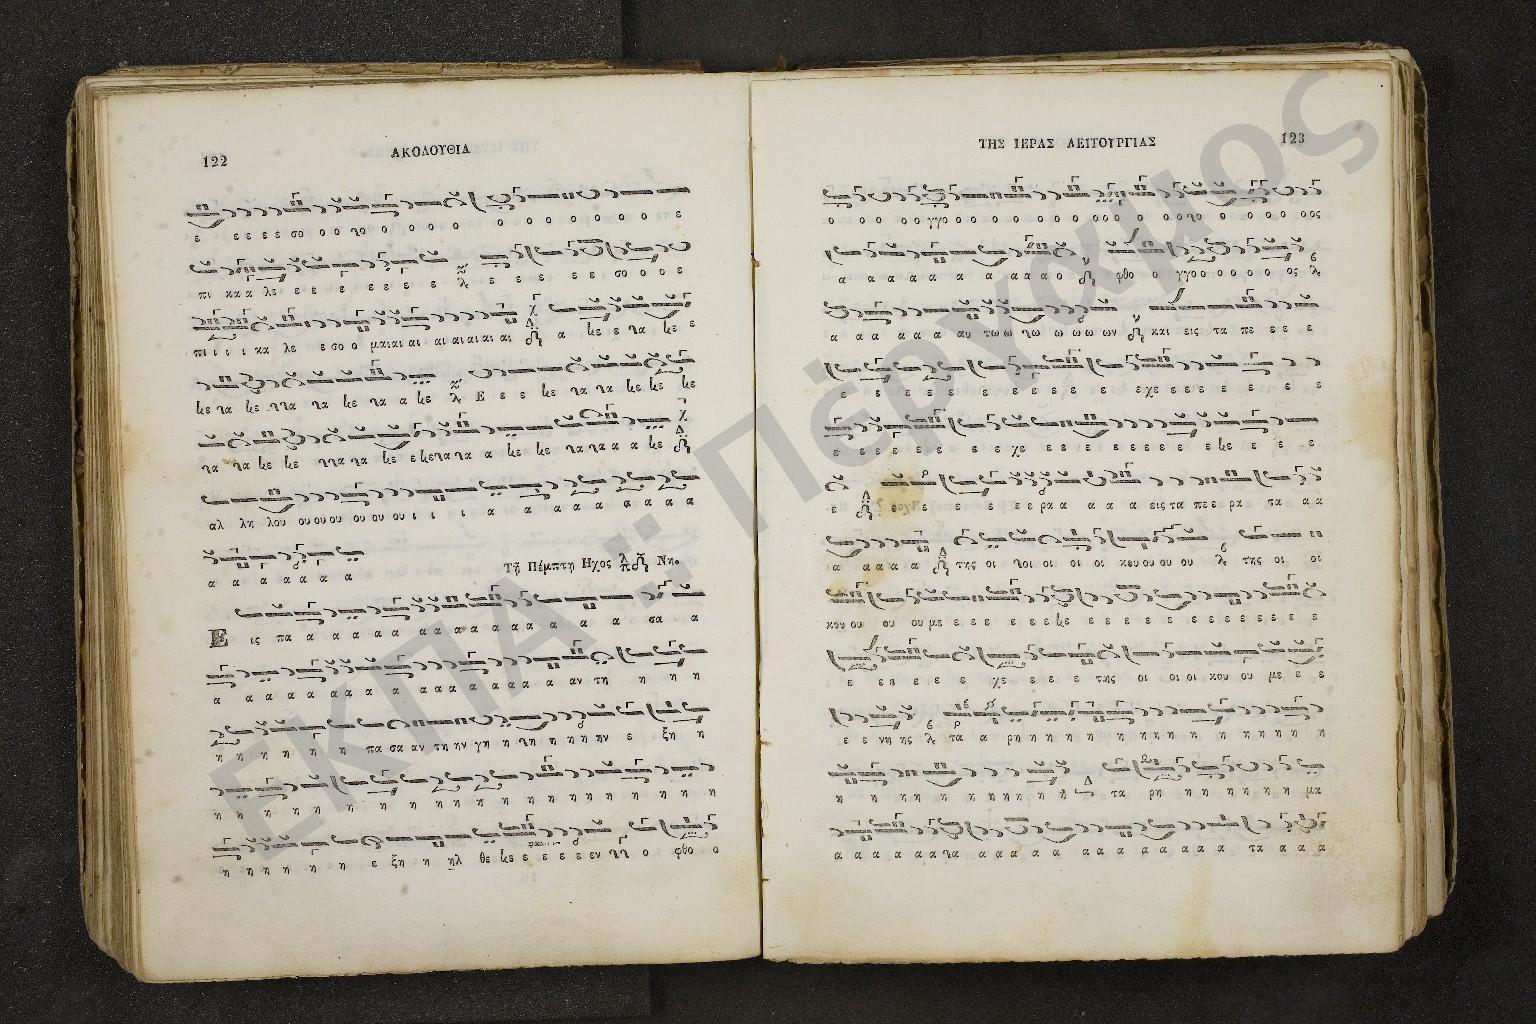 122
ΑΚΟΛΟΥΘΙΑ
ε ε ε ε ε σο ο ο χο ο ο ο ο ο ο ο ο ο ο ο ο ε
πι κα α λε ε ε ε ε ε ε ε ε ε ε ε ε ε σο ο ο ε
πι ι ι ι κα λε ε σο ο μαιαι αι αι αι αι αι αι α κε ε χα κε ε
κε χα κε χα χα κε χα α κε Ε ε ε κε χα χα κε κε κε
χα χα κε κε χα χα κε ε κε χα χα α κε κε χα χα α α κε
αλ λη λου ου ου ου ου ου ου ι ι ι α α α α α α α α
α α α α α α α
Τῇ Πέμπτῃ Ηχος Νη.
Ε ις πα α α α α α α α α α α α α α α α σα α
α α α α α α α α α α α α α α α α α αν τη η η η
η η η η η πα σα αν τη ην γη η χη η η η ην ε ξη η
η η η η η η η η η η η η η η η η η η η
η η η η η η ε ξη η ηλ θε κε ε ε ε ε εν χχ ο φθο ο
ΤΗΣ ΙΕΡΑΣ ΛΕΙΤΟΥΡΓΙΑΣ
123
ο ο ο ο ο γγο ο ο ο ο ο ο ο ο ο ο ο ο χο ο ο ο ο ο ος
α α α α α α α α α α ο φθο ο γγο ο ο ο ο ο ος
α α α α α α αυ τω ω χω ω ω ω ων και εις τα πε ε ε ε
ε ε ε ε ε ε ε ε ε ε ε χε ε ε ε ε ε ε ε
ε ε ε ε ε ε ε ε χε ε ε ε ε ε ε ε ε κε ε ε ε
ε εσχε ε ε ε ε ε ρα α α α α εις τα πε ε ρα τα α α
α α α α α της οι χοι οι οι οι κου ου ου ου της οι οι
κου ου ου ου με ε ε ε ε ε ε κε ε ε ε ε ε ε ε ε ε ε ε ε ε
ε ε ε ε ε ε χε ε ε ε της οι οι οι κου ου με ε ε
ε ε νη ης τα α ρη η η η η η η η η η η η η η η
η η η η η η η η η η ή τα ρη η η η η η η μα
α α α α α α χα α α α α α α α α α α α α α τα α α α
ΕΚΠΑ :: Πέργαμος